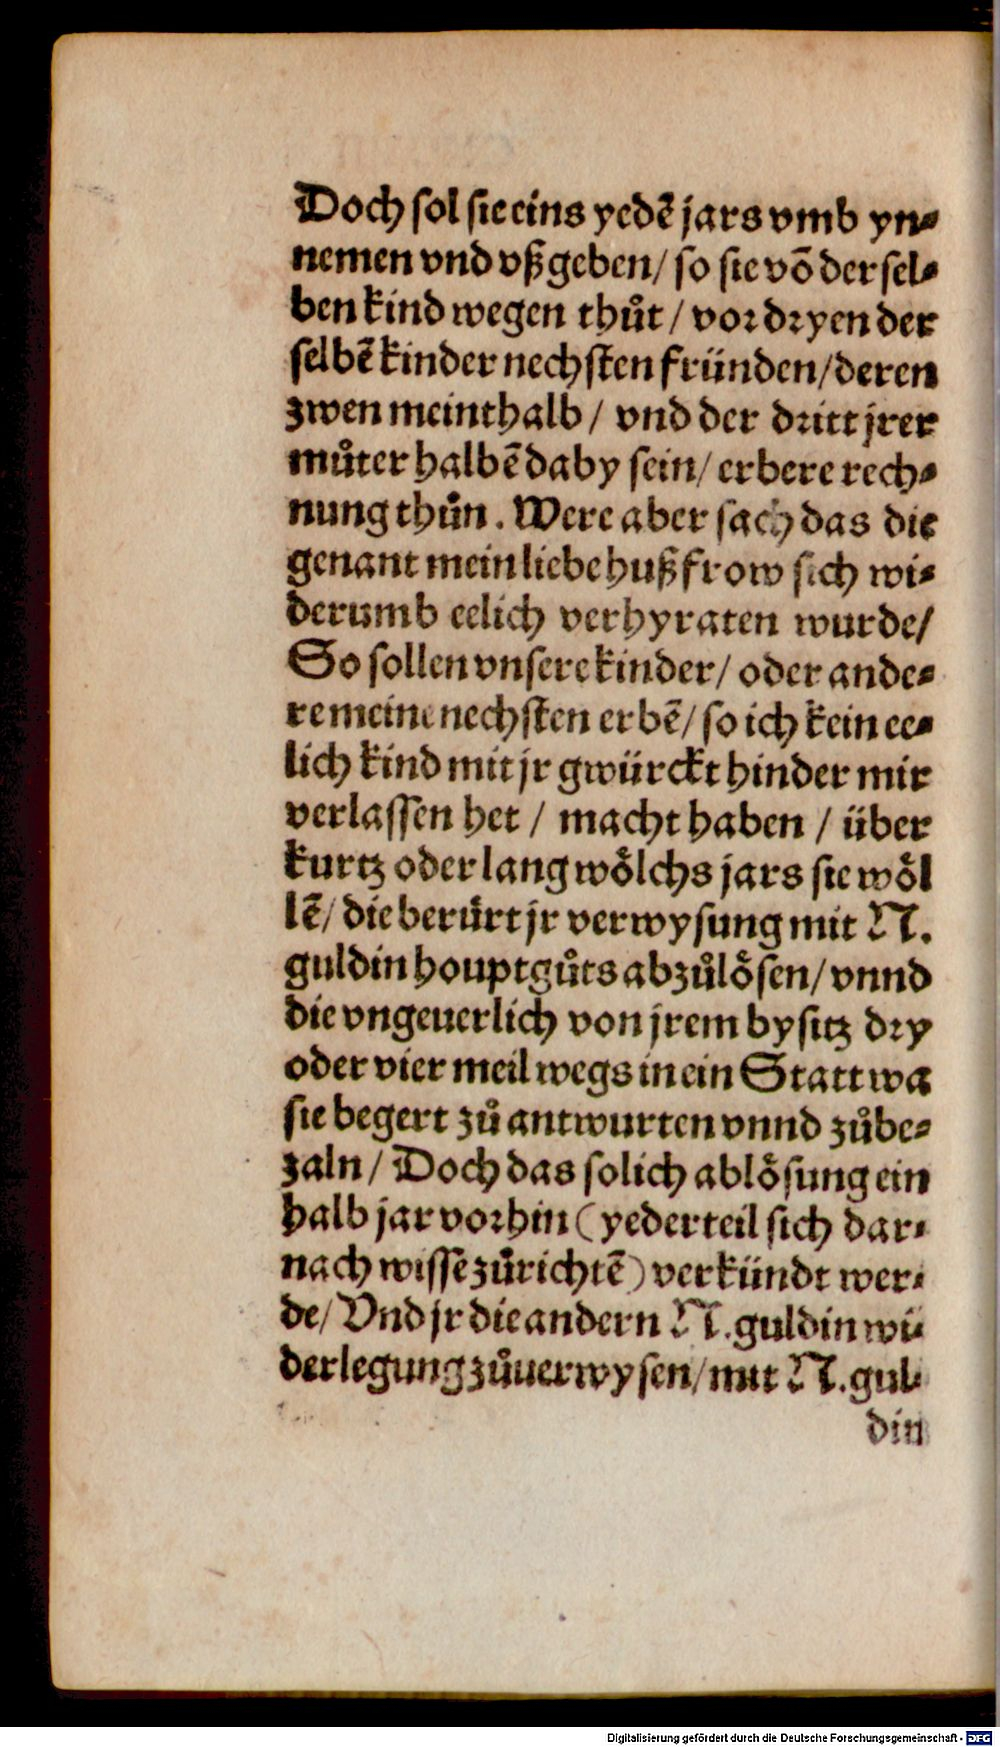 Doch sol sie eins yedē jars vmb yn⸗
nemen vnd vßgeben/ so sie vō der sel⸗
ben kind wegen thůt / vor dryen der
selbē kinder nechsten fründen/ deren
zwen meinthalb / vnd der dritt jrer
můter halbē daby sein/ erbere rech⸗
nung thůn. Were aber sach das die
genant mein liebe hußfrow sich wi⸗
derumb eelich verhyraten wurde/
So sollen vnsere kinder/ oder ande⸗
re meine nechsten erbē/ so ich kein ee⸗
lich kind mit jr gwürckt hinder mir
verlassen het / macht haben / über
kurtz oder lang woͤlchs jars sie woͤl
lē/ die berürt jr verwysung mit N.
guldin houptgůts abzůloͤsen/ vnnd
die vngeuerlich von jrem bysitz dry
oder vier meil wegs in ein Statt wa
sie begert zů antwurten vnnd zůbe⸗
zaln / Doch das solich abloͤsung ein
halb jar vorhin (yeder teil sich dar⸗
nach wisse zůrichtē) verkündt wer⸗
de/ Vnd jr die andern N. guldin wi⸗
derlegung zůuerwysen/ mit N. gul⸗
din
Digitalisierung gefördert durch die Deutsche Forschungsgemeinschaft - DFG